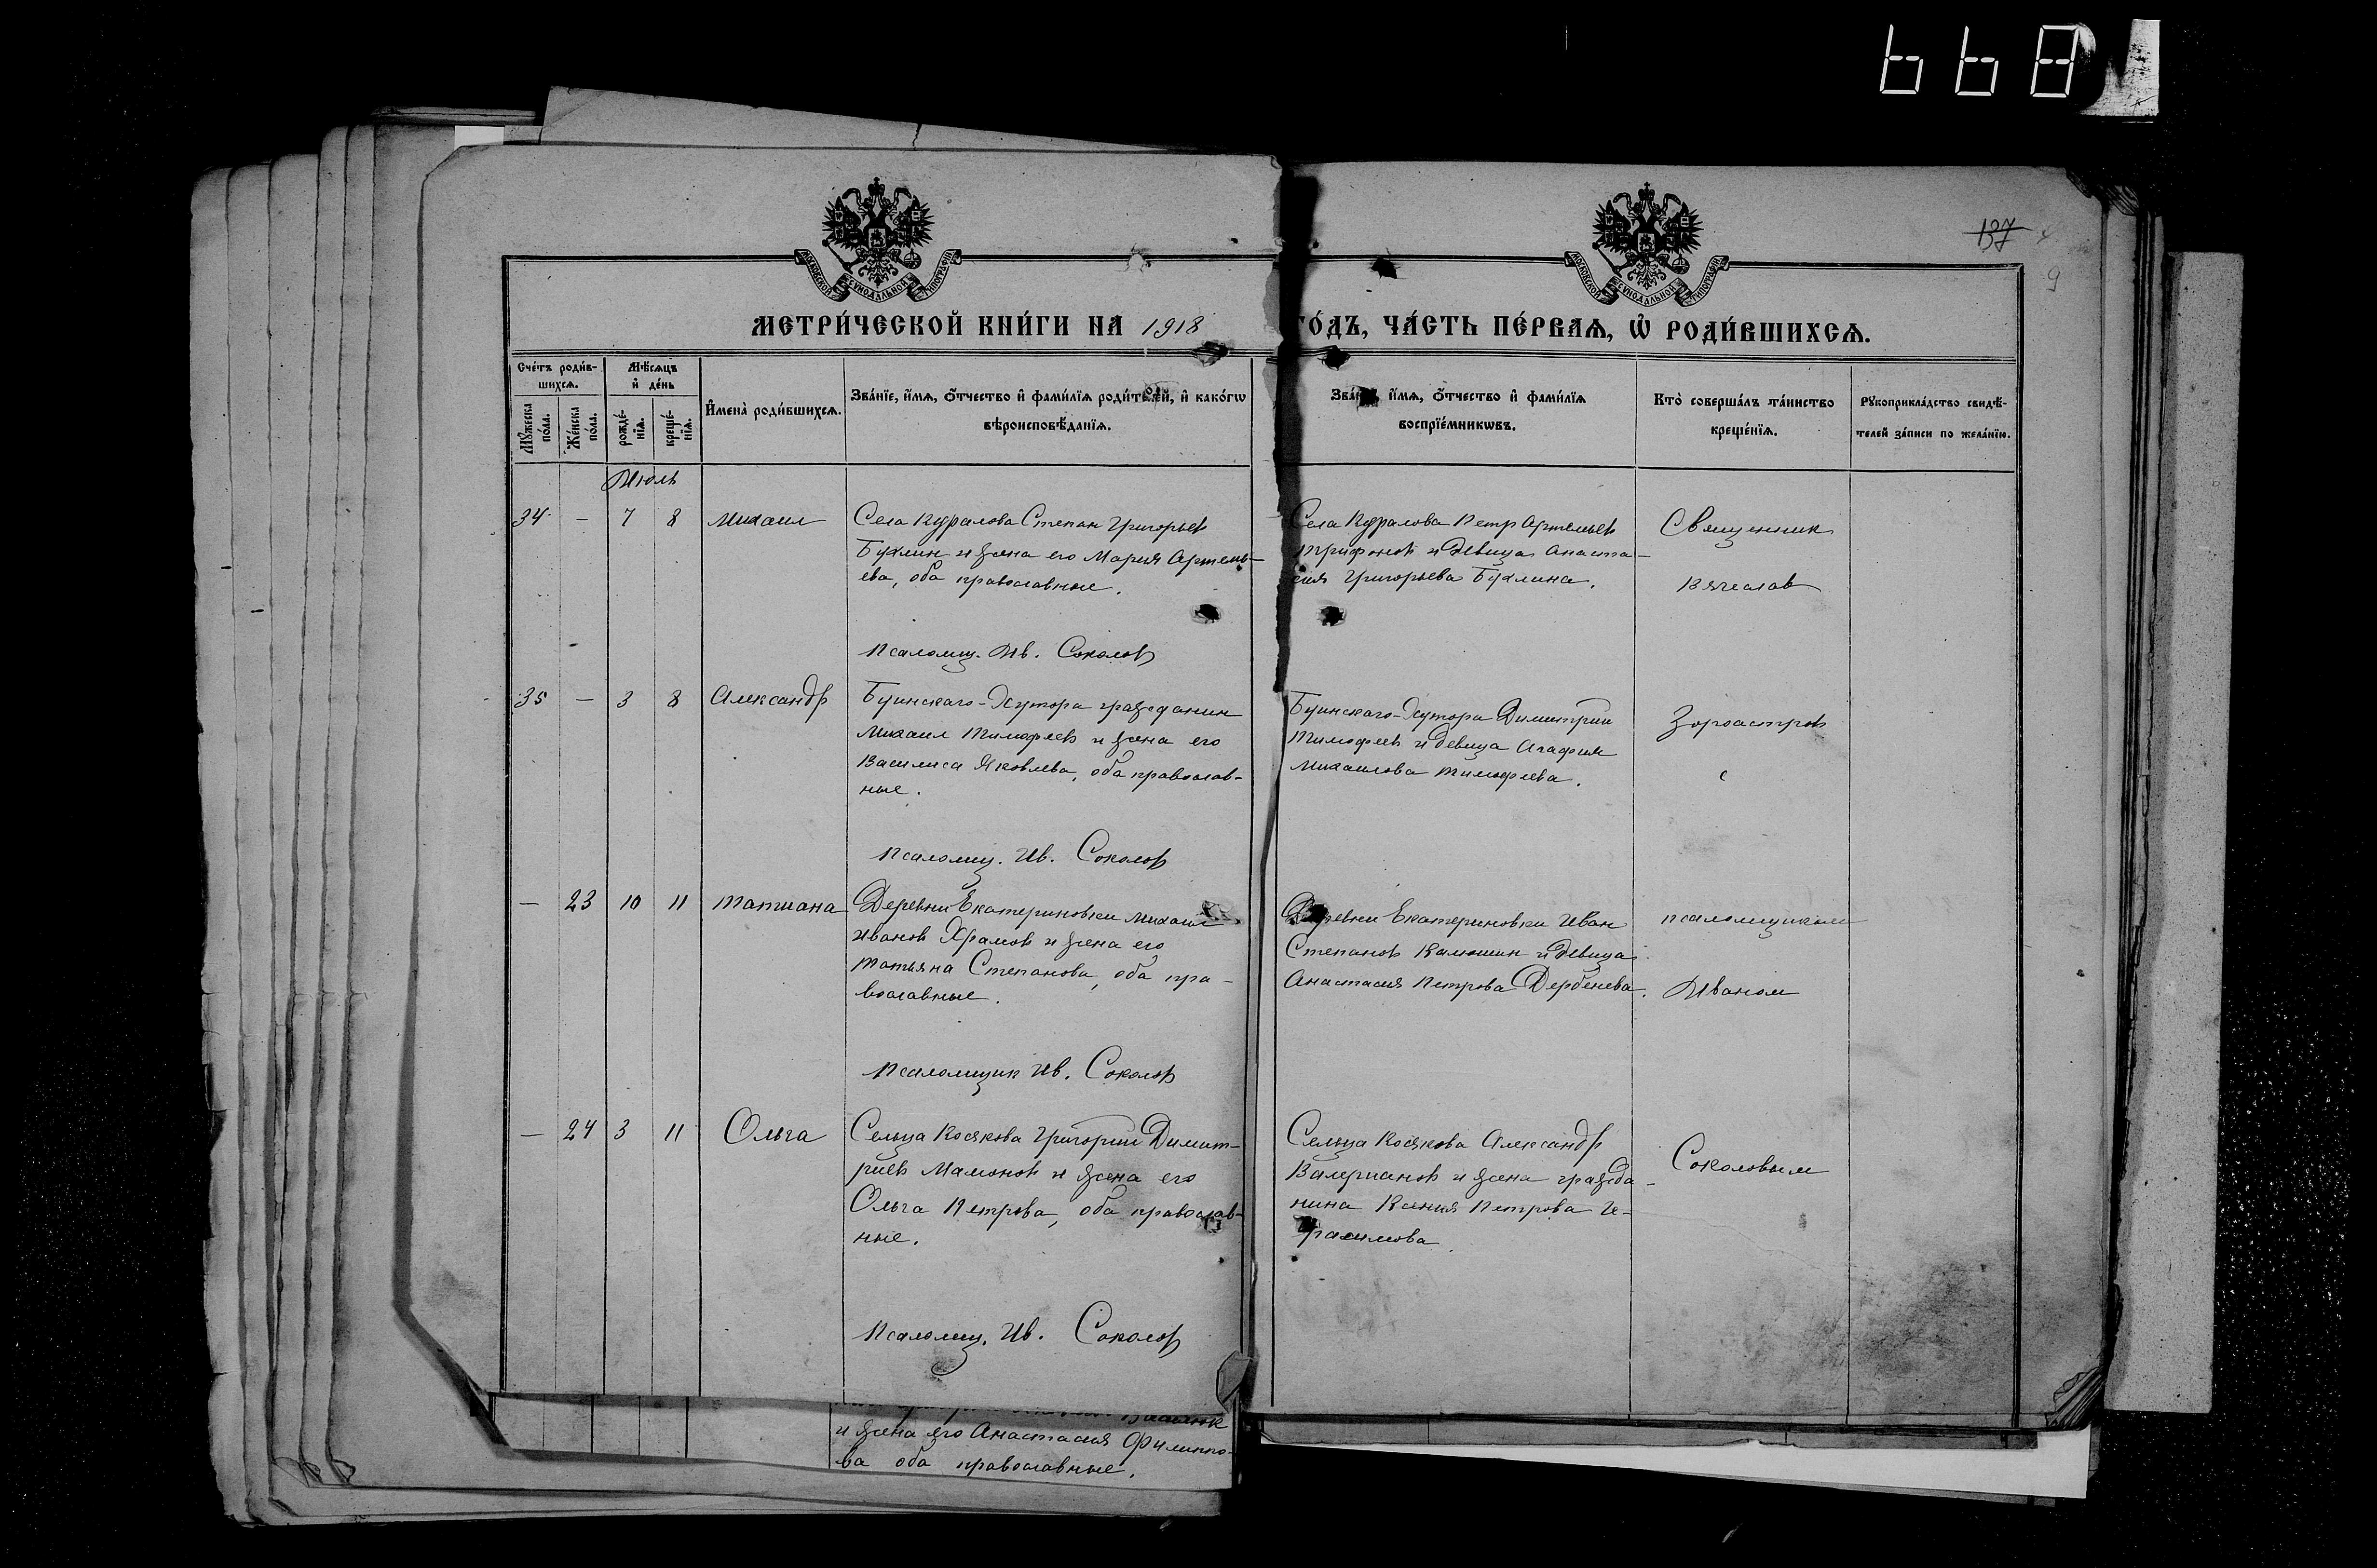 МОСКОВСКОЙ СѴНОДАЛЬНОЙ ТИПОГРАФІИ
МОСКОВСКОЙ СѴНОДАЛЬНОЙ ТИПОГРАФІИ
137
9
МЕТРИ́ЧЕСКОЙ КНИ́ГИ НА 1918
ГО́ДЪ, ЧА́СТЬ ПЕ́РВАѦ, Ѡ҆ РОДИ́ВШИХСѦ.
Сче́тъ роди́в-
шихсѧ.
Мꙋ́жеска по́ла.
Же́нска по́ла.
Мѣ́сѧцъ
и҆ де́нь
рожде́-
нїѧ.
креще́-
нїѧ.
И҆мена̀ роди́вшихсѧ.
Зва́нїе, и҆́мѧ, ѻ҆́тчество и҆ фами́лїѧ роди́телей, и҆ како́гѡ
вѣроисповѣ́данїѧ.
Зва́нїе, и҆́мѧ, ѻ҆́тчество и҆ фами́лїѧ
воспрїе́мникѡвъ.
Кто̀ соверша́лъ та́инство
креще́нїѧ.
Рꙋкоприкла́дство свидѣ́-
телей за́писи по жела́нїю.
Июль
34 - 7 8 Михаил
Села Куралова Степан Григорьев
Бухлин и жена его Мария Артемь-
ева, оба православные.
Псаломщ. Ив. Соколов
Села Куралова Петр Артемьев
Трифонов и девица Анаста-
сия Григорьева Бухлина.
Священник
Вячеслав
35 - 3 8 Александр
Буинскаго-Хутора гражданин
Михаил Тимофеев и жена его
Василиса Яковлева, оба православ-
ные.
Псаломщ. Ив. Соколов
Буинскаго-Хутора Димитрий
Тимофеев и девица Агафия
Михаилова Тимофеева.
Зороастров
с
- 23 10 11 Татиана
Деревни Екатериновки Михаил
Иванов Храмов и жена его
Татьяна Степанова, оба пра-
вославные.
Псаломщик Ив. Соколов
Деревни Екатериновки Иван
Степанов Калюшин и девица
Анастасия Петрова Дербенева.
псаломщиком
Иваном
- 24 3 11 Ольга
Сельца Косякова Григорий Димит-
риев Мамонов и жена его
Ольга Петрова, оба православ-
ные.
Псаломщ. Ив. Соколов
Сельца Косякова Александр
Валерианов и жена гражда-
нина Ксения Петрова Ге-
расимова
Соколовым
и жена его Анастасия Филиппо-
ва оба православные.